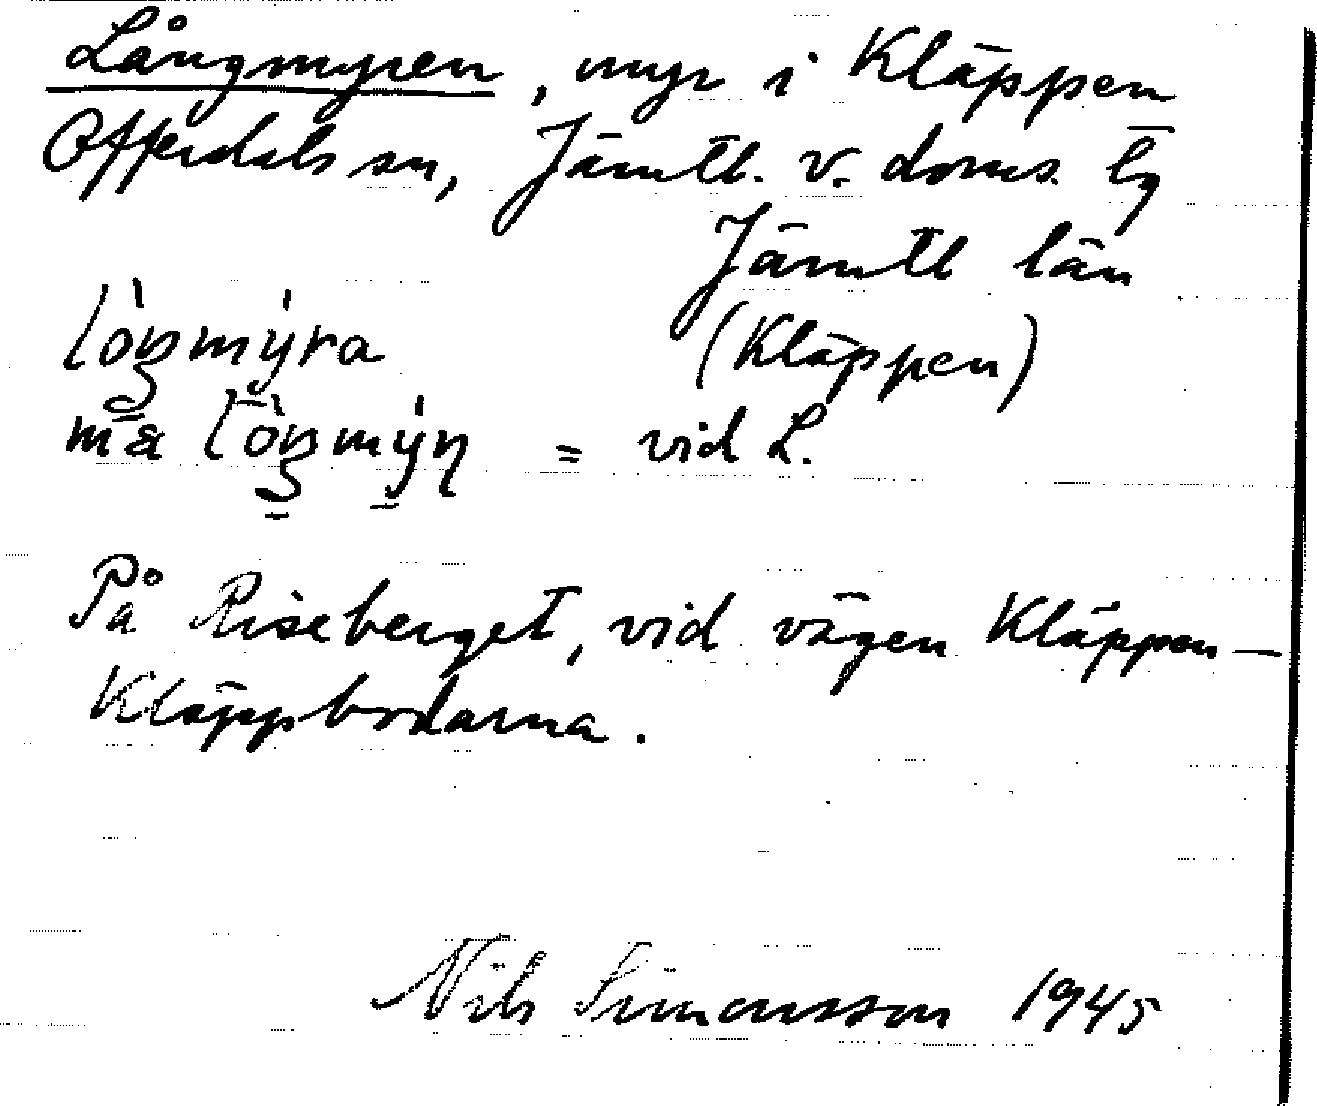 Långmyren, myr i Kläppen
Offerdals sn, Jämtl. v. doms. lg
Jämtl län
(Kläppen)
= vid L.
På Riseberget, vid vägen Kläppen —
Kläppbodarna.
Nils Simonsson 1945